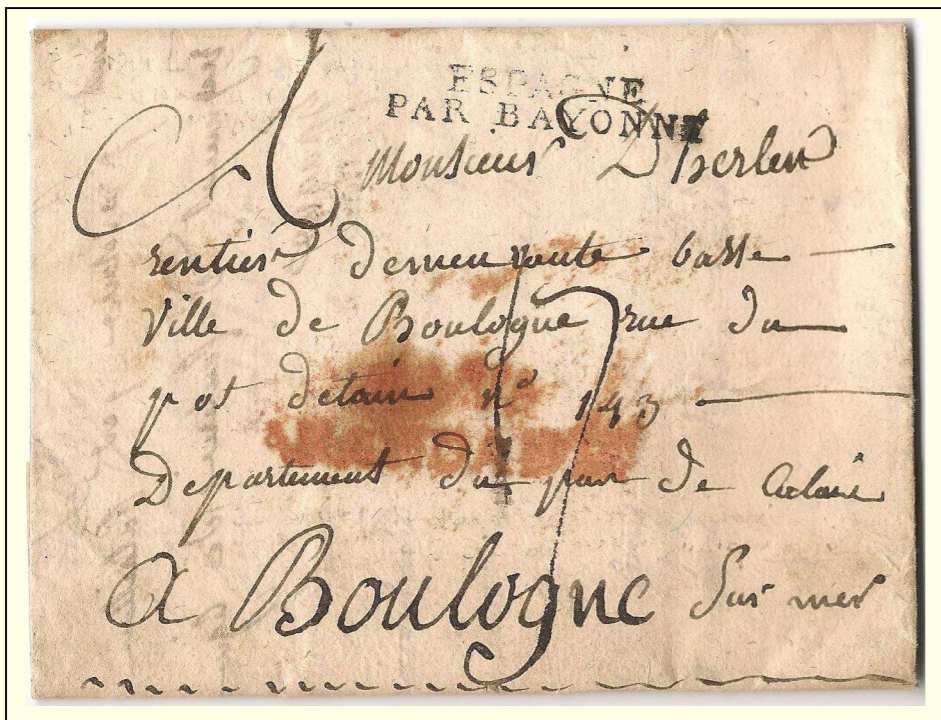 ESPAGNE
PAR BAYONNE
A Monsieur Dherlen
rentier demeurante basse
Ville de Boulogne rue du
pot detain n° 143
Departement du pas de Calais
a Boulogne Sur mer